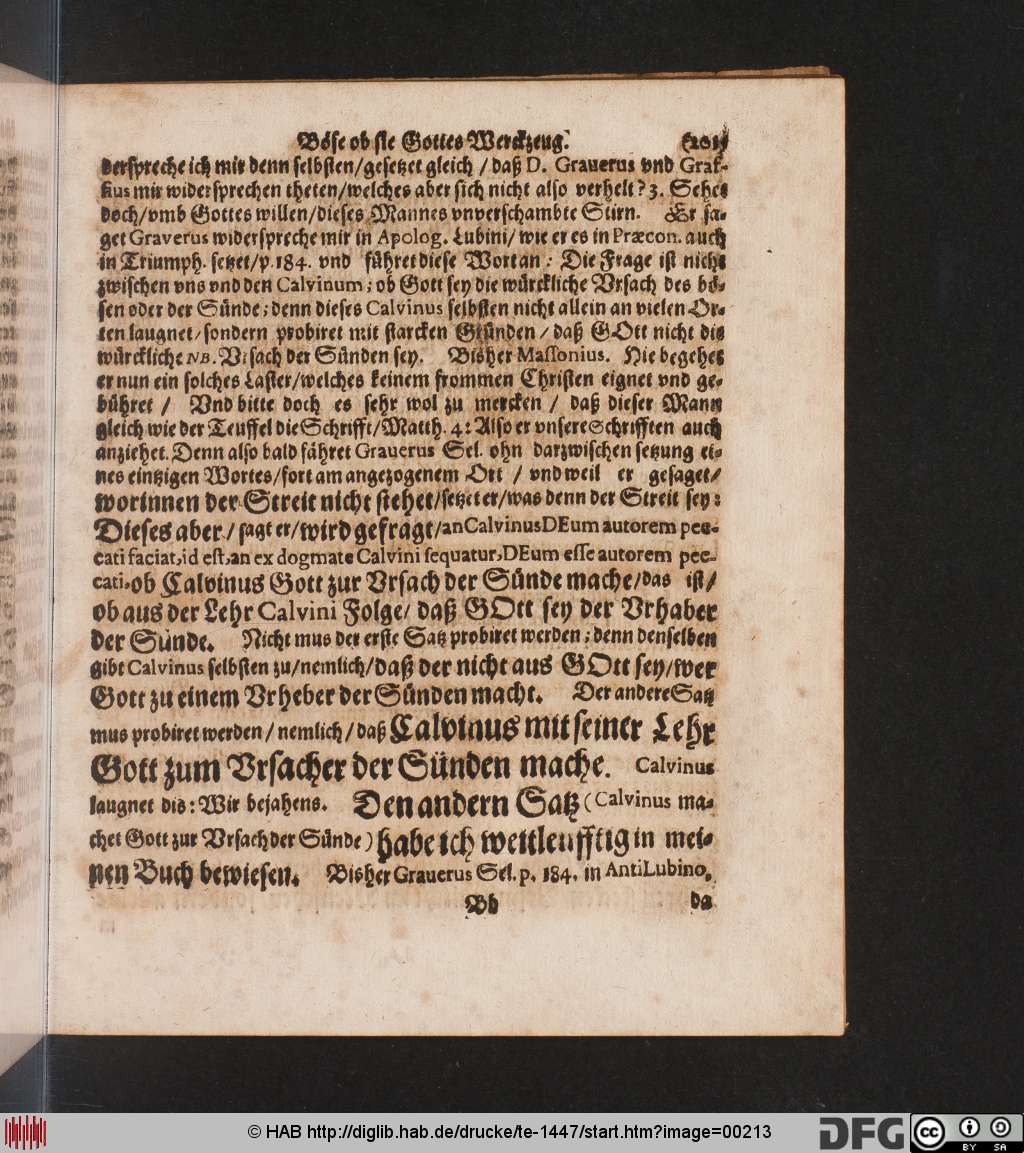 Böse ob sie Gottes Werckzeug.
derspreche ich mir denn selbsten/gesetzet gleich / daß D. Grauerus vnd Graf-
kius mir widersprechen theten/welches aber sich nicht also verhelt? 3. Sehet
doch/vmb Gottes willen/dieses Mannes vnverschambte Stirn. Er sa-
get Graverus widerspreche mir in Apolog. Lubini/ wie er es in Præcon. auch
in Triumph. setzet/p. 184. vnd führet diese Wort an: Die Frage ist nicht
zwischen vns vnd den Calvinum; ob Gott sey die würckliche Vrsach des bö-
sen oder der Sünde; denn dieses Calvinus selbsten nicht allein an vielen Or-
ten laugnet/sondern probiret mit starcken Gründen/ daß GOtt nicht die
würckliche NB. Vrsach der Sünden sey. Bisher Massonius. Hie begehet
er nun ein solches Laster/welches keinem frommen Christen eignet vnd ge-
bühret / Vnd bitte doch es sehr wol zu mercken / daß dieser Mann
gleich wie der Teuffel die Schrifft/Matth. 4: Also er vnsere Schrifften auch
anziehet. Denn also bald fähret Grauerus Sel. ohn darzwischen setzung ei-
nes eintzigen Wortes/fort am angezogenem Ort / vnd weil er gesaget/
worinnen der Streit nicht stehet/setzet er/was denn der Streit sey:
Dieses aber/ sagt er/wird gefragt/an Calvinus DEum autorem pec-
cati faciat, id est, an ex dogmate Calvini sequatur, DEum esse autorem pec-
cati, ob Calvinus Gott zur Vrsach der Sünde mache/das ist/
ob aus der Lehr Calvini Folge/ daß GOtt sey der Vrhaber
der Sünde. Nicht mus der erste Satz probiret werden; denn denselben
gibt Calvinus selbsten zu/nemlich/daß der nicht aus GOtt sey/wer
Gott zu einem Vrheber der Sünden macht. Der andere Satz
mus probiret werden/ nemlich/ daß Calvinus mit seiner Lehr
Gott zum Vrsacher der Sünden mache. Calvinus
laugnet dis: Wir bejahens. Den andern Satz (Calvinus ma-
chet Gott zur Vrsach der Sünde) habe ich weitleufftig in mei-
nen Buch bewiesen. Bisher Grauerus Sel. p. 184. in AntiLubino,
Bb da
© HAB http://diglib.hab.de/drucke/te-1447/start.htm?image=00213
DFG
cc BY SA